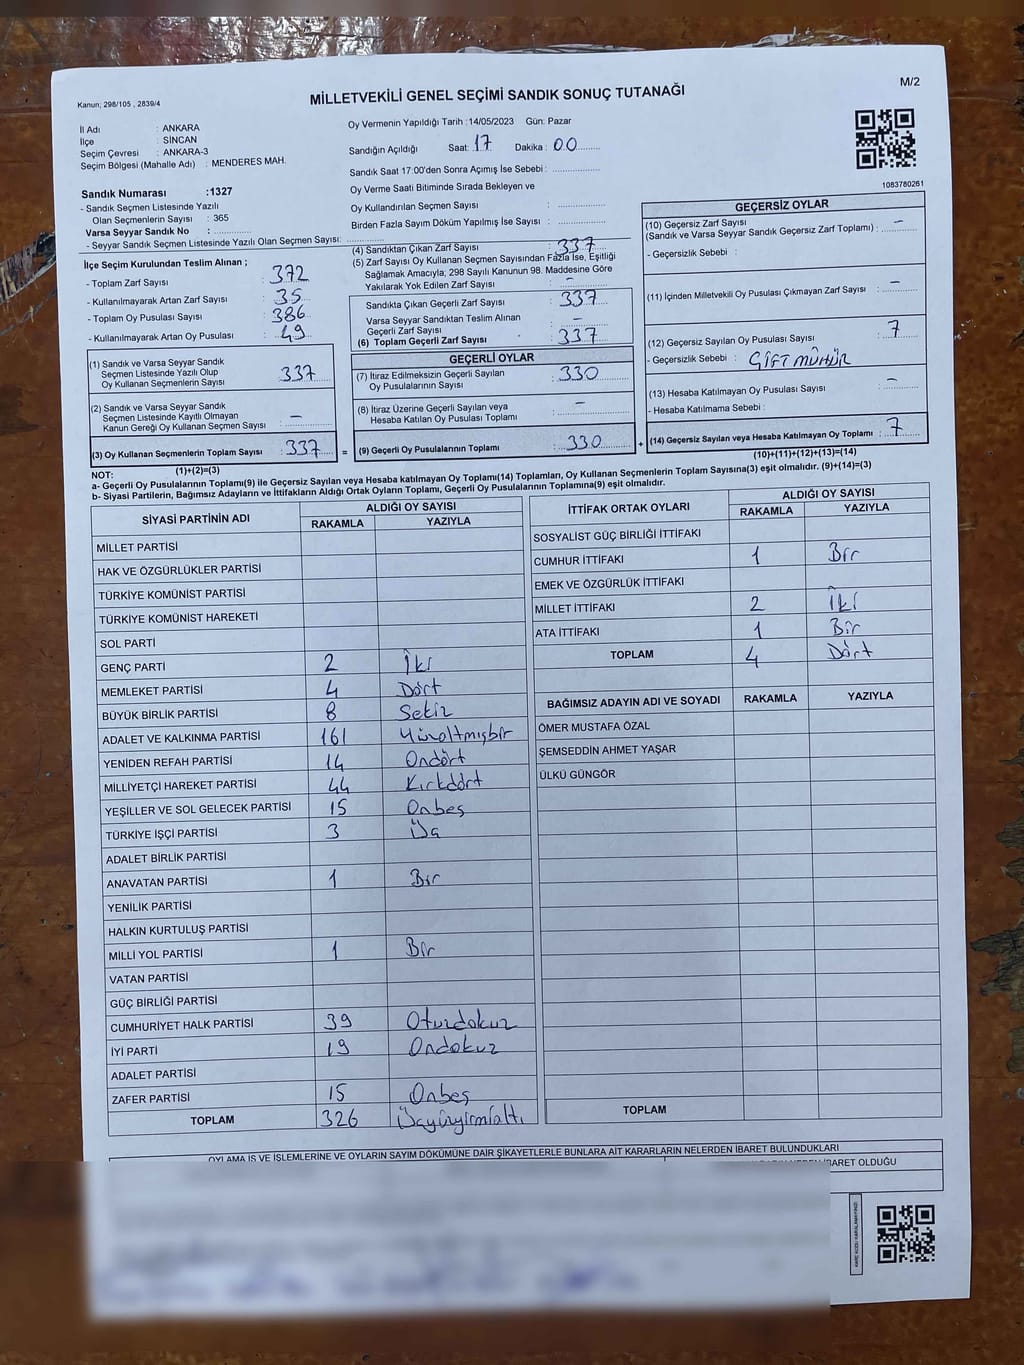 Kanun; 298/105 , 2839/4
MİLLETVEKİLİ GENEL SEÇİMİ SANDIK SONUÇ TUTANAĞI
M/2
İl Adı : ANKARA
İlçe : SİNCAN
Seçim Çevresi : ANKARA-3
Seçim Bölgesi (Mahalle Adı) : MENDERES MAH.
Sandık Numarası :1327
- Sandık Seçmen Listesinde Yazılı
Olan Seçmenlerin Sayısı : 365
Varsa Seyyar Sandık No :
- Seyyar Sandık Seçmen Listesinde Yazılı Olan Seçmen Sayısı:
Oy Vermenin Yapıldığı Tarih :14/05/2023 Gün: Pazar
Sandığın Açıldığı Saat: 17 Dakika : 00
Sandık Saat 17:00'den Sonra Açılmış İse Sebebi :
Oy Verme Saati Bitiminde Sırada Bekleyen ve
Oy Kullandırılan Seçmen Sayısı :
Birden Fazla Sayım Döküm Yapılmış İse Sayısı :
1083780261
İlçe Seçim Kurulundan Teslim Alınan ;
- Toplam Zarf Sayısı : 372
- Kullanılmayarak Artan Zarf Sayısı : 35
- Toplam Oy Pusulası Sayısı : 386
- Kullanılmayarak Artan Oy Pusulası : 49
(1) Sandık ve Varsa Seyyar Sandık
Seçmen Listesinde Yazılı Olup
Oy Kullanan Seçmenlerin Sayısı : 337
(2) Sandık ve Varsa Seyyar Sandık
Seçmen Listesinde Kayıtlı Olmayan
Kanun Gereği Oy Kullanan Seçmen Sayısı : –
(3) Oy Kullanan Seçmenlerin Toplam Sayısı : 337
(1)+(2)=(3)
(4) Sandıktan Çıkan Zarf Sayısı : 337
(5) Zarf Sayısı Oy Kullanan Seçmen Sayısından Fazla İse, Eşitliği
Sağlamak Amacıyla; 298 Sayılı Kanunun 98. Maddesine Göre
Yakılarak Yok Edilen Zarf Sayısı : –
Sandıkta Çıkan Geçerli Zarf Sayısı : 337
Varsa Seyyar Sandıktan Teslim Alınan
Geçerli Zarf Sayısı : –
(6) Toplam Geçerli Zarf Sayısı : 337
GEÇERLİ OYLAR
(7) İtiraz Edilmeksizin Geçerli Sayılan
Oy Pusulalarının Sayısı : 330
(8) İtiraz Üzerine Geçerli Sayılan veya
Hesaba Katılan Oy Pusulası Toplamı : –
= (9) Geçerli Oy Pusulalarının Toplamı : 330
GEÇERSİZ OYLAR
(10) Geçersiz Zarf Sayısı
(Sandık ve Varsa Seyyar Sandık Geçersiz Zarf Toplamı) : –
- Geçersizlik Sebebi :
(11) İçinden Milletvekili Oy Pusulası Çıkmayan Zarf Sayısı : –
(12) Geçersiz Sayılan Oy Pusulası Sayısı : 7
- Geçersizlik Sebebi : ÇİFT MÜHÜR
(13) Hesaba Katılmayan Oy Pusulası Sayısı : –
- Hesaba Katılmama Sebebi :
+ (14) Geçersiz Sayılan veya Hesaba Katılmayan Oy Toplamı : 7
(10)+(11)+(12)+(13)=(14)
NOT:
a- Geçerli Oy Pusulalarının Toplamı(9) ile Geçersiz Sayılan veya Hesaba katılmayan Oy Toplamı(14) Toplamları, Oy Kullanan Seçmenlerin Toplam Sayısına(3) eşit olmalıdır. (9)+(14)=(3)
b- Siyasi Partilerin, Bağımsız Adayların ve İttifakların Aldığı Ortak Oyların Toplamı, Geçerli Oy Pusulalarının Toplamına(9) eşit olmalıdır.
SİYASİ PARTİNİN ADI ALDIĞI OY SAYISI
RAKAMLA YAZIYLA
MİLLET PARTİSİ
HAK VE ÖZGÜRLÜKLER PARTİSİ
TÜRKİYE KOMÜNİST PARTİSİ
TÜRKİYE KOMÜNİST HAREKETİ
SOL PARTİ
GENÇ PARTİ 2 İki
MEMLEKET PARTİSİ 4 Dört
BÜYÜK BİRLİK PARTİSİ 8 Sekiz
ADALET VE KALKINMA PARTİSİ 161 Yüzaltmışbir
YENİDEN REFAH PARTİSİ 14 Ondört
MİLLİYETÇİ HAREKET PARTİSİ 44 Kırkdört
YEŞİLLER VE SOL GELECEK PARTİSİ 15 Onbeş
TÜRKİYE İŞÇİ PARTİSİ 3 Üç
ADALET BİRLİK PARTİSİ
ANAVATAN PARTİSİ 1 Bir
YENİLİK PARTİSİ
HALKIN KURTULUŞ PARTİSİ
MİLLİ YOL PARTİSİ 1 Bir
VATAN PARTİSİ
GÜÇ BİRLİĞİ PARTİSİ
CUMHURİYET HALK PARTİSİ 39 Otuzdokuz
İYİ PARTİ 19 Ondokuz
ADALET PARTİSİ
ZAFER PARTİSİ 15 Onbeş
TOPLAM 326 Üçyüzyirmialtı
İTTİFAK ORTAK OYLARI ALDIĞI OY SAYISI
RAKAMLA YAZIYLA
SOSYALİST GÜÇ BİRLİĞİ İTTİFAKI
CUMHUR İTTİFAKI 1 Bir
EMEK VE ÖZGÜRLÜK İTTİFAKI
MİLLET İTTİFAKI 2 İki
ATA İTTİFAKI 1 Bir
TOPLAM 4 Dört
BAĞIMSIZ ADAYIN ADI VE SOYADI RAKAMLA YAZIYLA
ÖMER MUSTAFA ÖZAL
ŞEMSEDDİN AHMET YAŞAR
ÜLKÜ GÜNGÖR
TOPLAM
OYLAMA İŞ VE İŞLEMLERİNE VE OYLARIN SAYIM DÖKÜMÜNE DAİR ŞİKAYETLERLE BUNLARA AİT KARARLARIN NELERDEN İBARET BULUNDUKLARI
İBARET OLDUĞU
KARE KODU KARALAMAYINIZ!